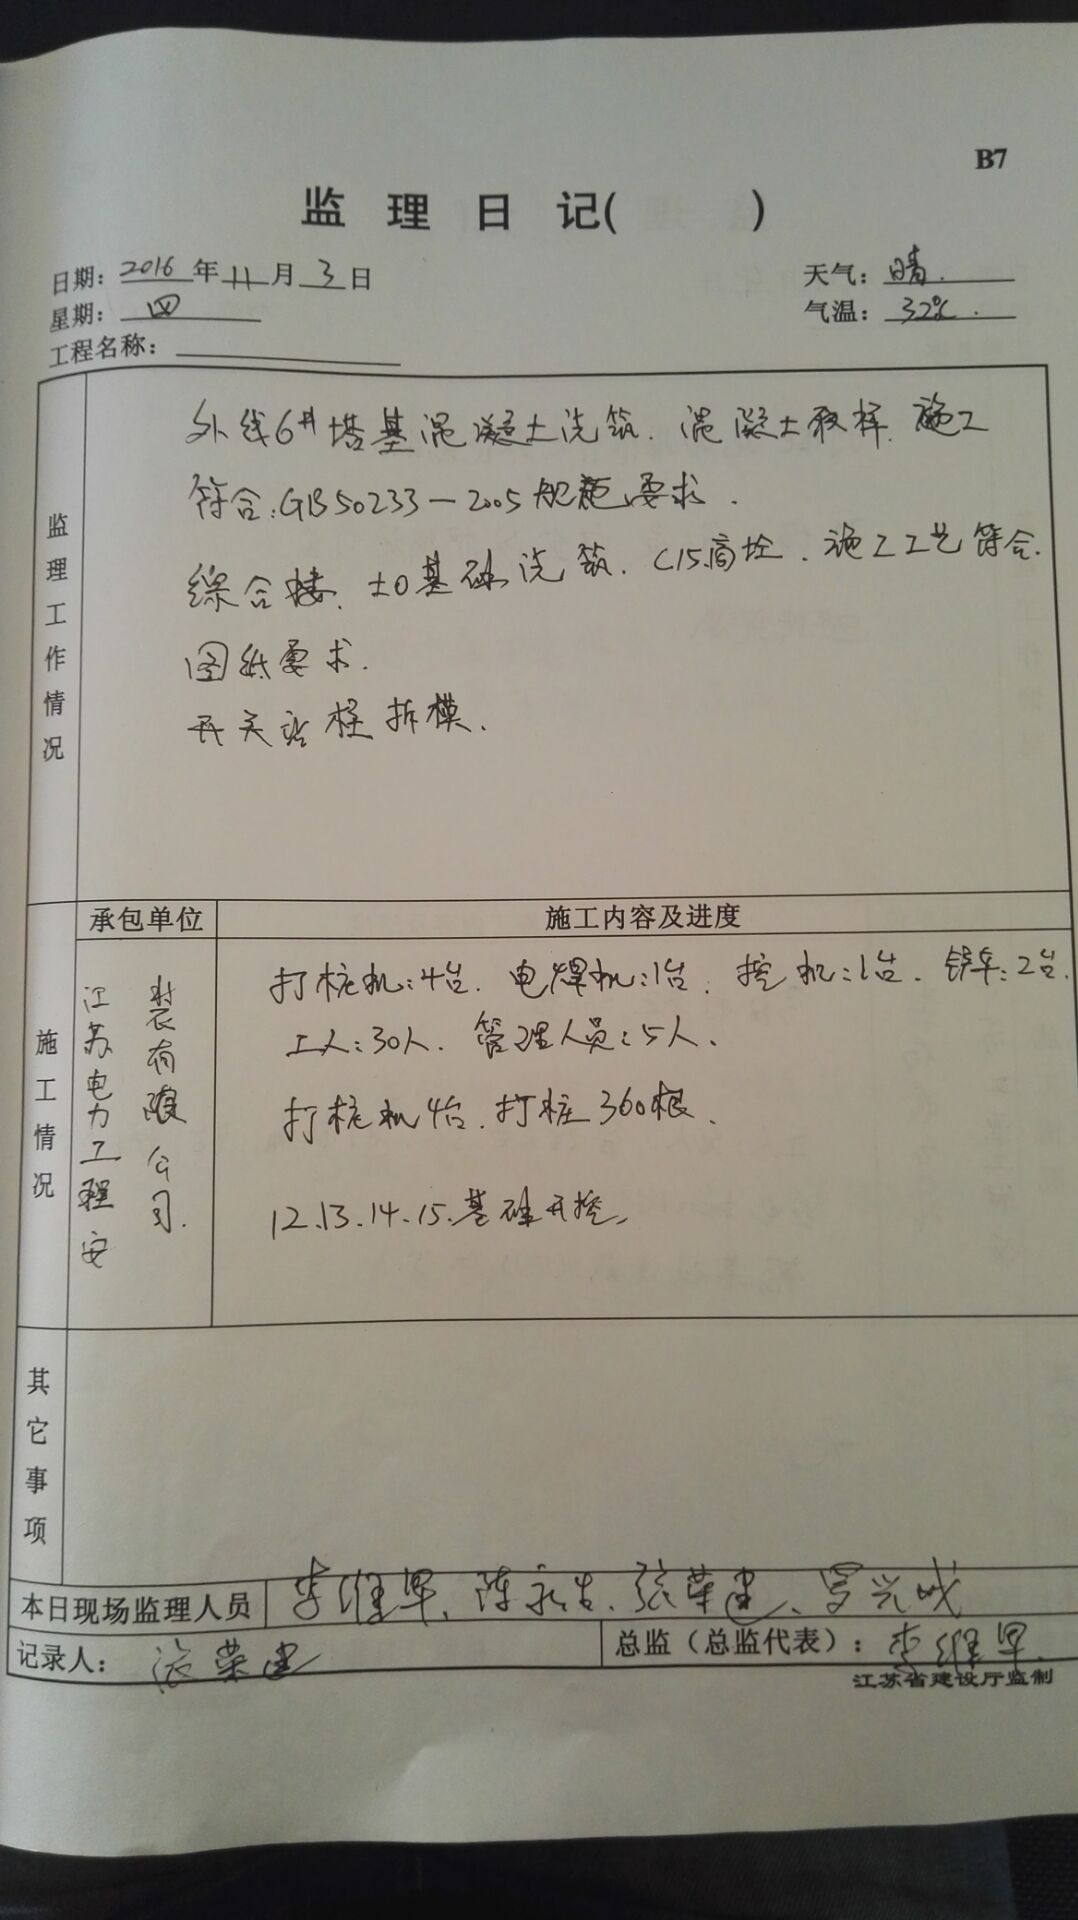 B7
监理日记( )
日期：2016年11月3日
天气：晴.
星期：四
气温：32℃.
工程名称：
监理工作情况
外线6#塔基混凝土浇筑.混凝土取样.施工
符合:GB50233—2005规范要求.
综合楼.±0基础浇筑.C15商垃.施工工艺符合.
图纸要求.
开关站柱拆模.
承包单位
施工内容及进度
施工情况
江苏电力工程安
装有限公司.
打桩机:4台.电焊机:1台.挖机:1台.轿车:2台.
工人:30人.管理人员:5人.
打桩机4台.打桩360根.
12.13.14.15.基础开挖.
其它事项
本日现场监理人员
李维早、陈永生、张荣建、罗兴成
记录人：张荣建
总监（总监代表）：李维早.
江苏省建设厅监制